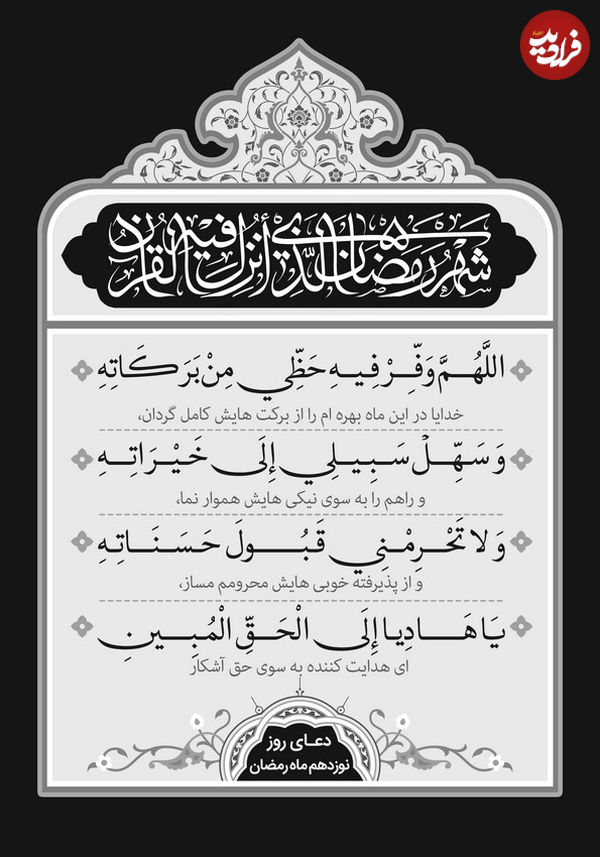 فرادید
شَهْرُ رَمَضَانَ الَّذِي أُنْزِلَ فِيهِ الْقُرْآنُ
اللَّهُمَّ وَفِّرْ فِيهِ حَظِّي مِنْ بَرَكَاتِهِ
خدایا در این ماه بهره ام را از برکت هایش کامل گردان،
وَ سَهِّلْ سَبِيلِي إِلَى خَيْرَاتِهِ
و راهم را به سوی نیکی هایش هموار نما،
وَ لا تَحْرِمْنِي قَبُولَ حَسَنَاتِهِ
و از پذیرفته خوبی هایش محرومم مساز،
يَا هَادِيا إِلَى الْحَقِّ الْمُبِينِ
ای هدایت کننده به سوی حق آشکار
دعای روز
نوزدهم ماه رمضان